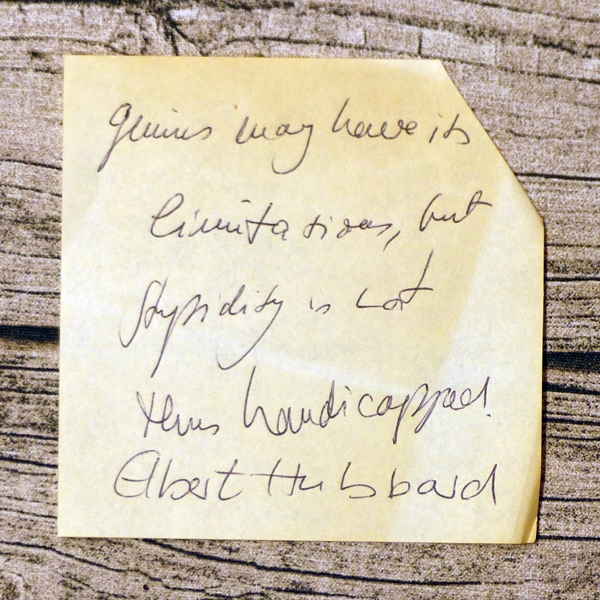 Genius may have its
limitations, but
Stupidity is not
thus handicapped.
Elbert Hubbard